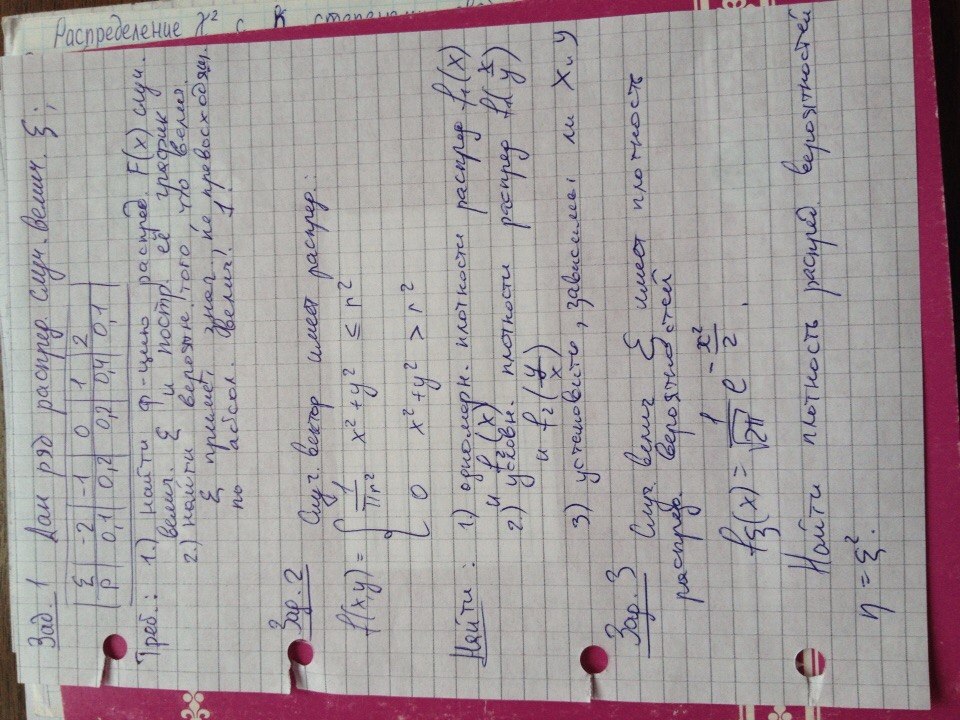 Распределение χ² с
Зад. 1 Дан ряд распред. случ. велич. ξ;
ξ | -2 | -1 | 0 | 1 | 2
P | 0,1 | 0,2 | 0,2 | 0,4 | 0,1
Треб.: 1.) найти ф-цию распред. F(x) случ.
велич. ξ и постр. её график
2.) найти вероятн. того что велич.
ξ примет знач не превосходящ.
по абсол. велич. 1!
Зад. 2 Случ. вектор имеет распред.:
f(x,y) = { 1/πr² x² + y² ≤ r²
0 x² + y² > r²
Найти: 1) одномерн. плотности распред f₁(x)
и f₂(x)
2) условн. плотности распред f₁(x/y)
и f₂(y/x)
3) установить, зависимы ли X и Y
Зад. 3 Случ велич ξ имеет плотность
распред. вероятностей
fξ(x) = 1/√2π e^(-x²/2).
Найти плотность распред. вероятностей
η = ξ².